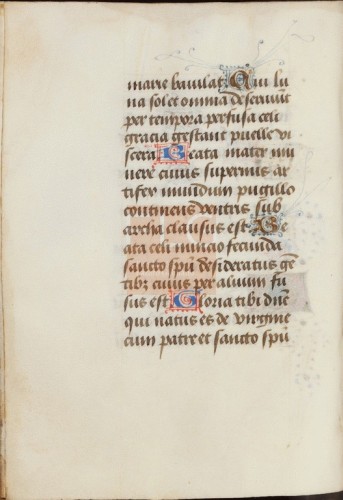 marie baiulat Cui lu
na sol et omnia deseruiūt
per tempora perfusa celi
gracia gestant puelle vi
scera Beata mater mu
nere cuius supernus ar
tifex mundum pugillo
continens ventris sub
archa clausus est Be
ata celi nuncio fecunda
sancto spū desideratus gē
tibz cuius per aluum fu
sus est Gloria tibi dnē
qui natus es de virgine
cum patre et sancto spū